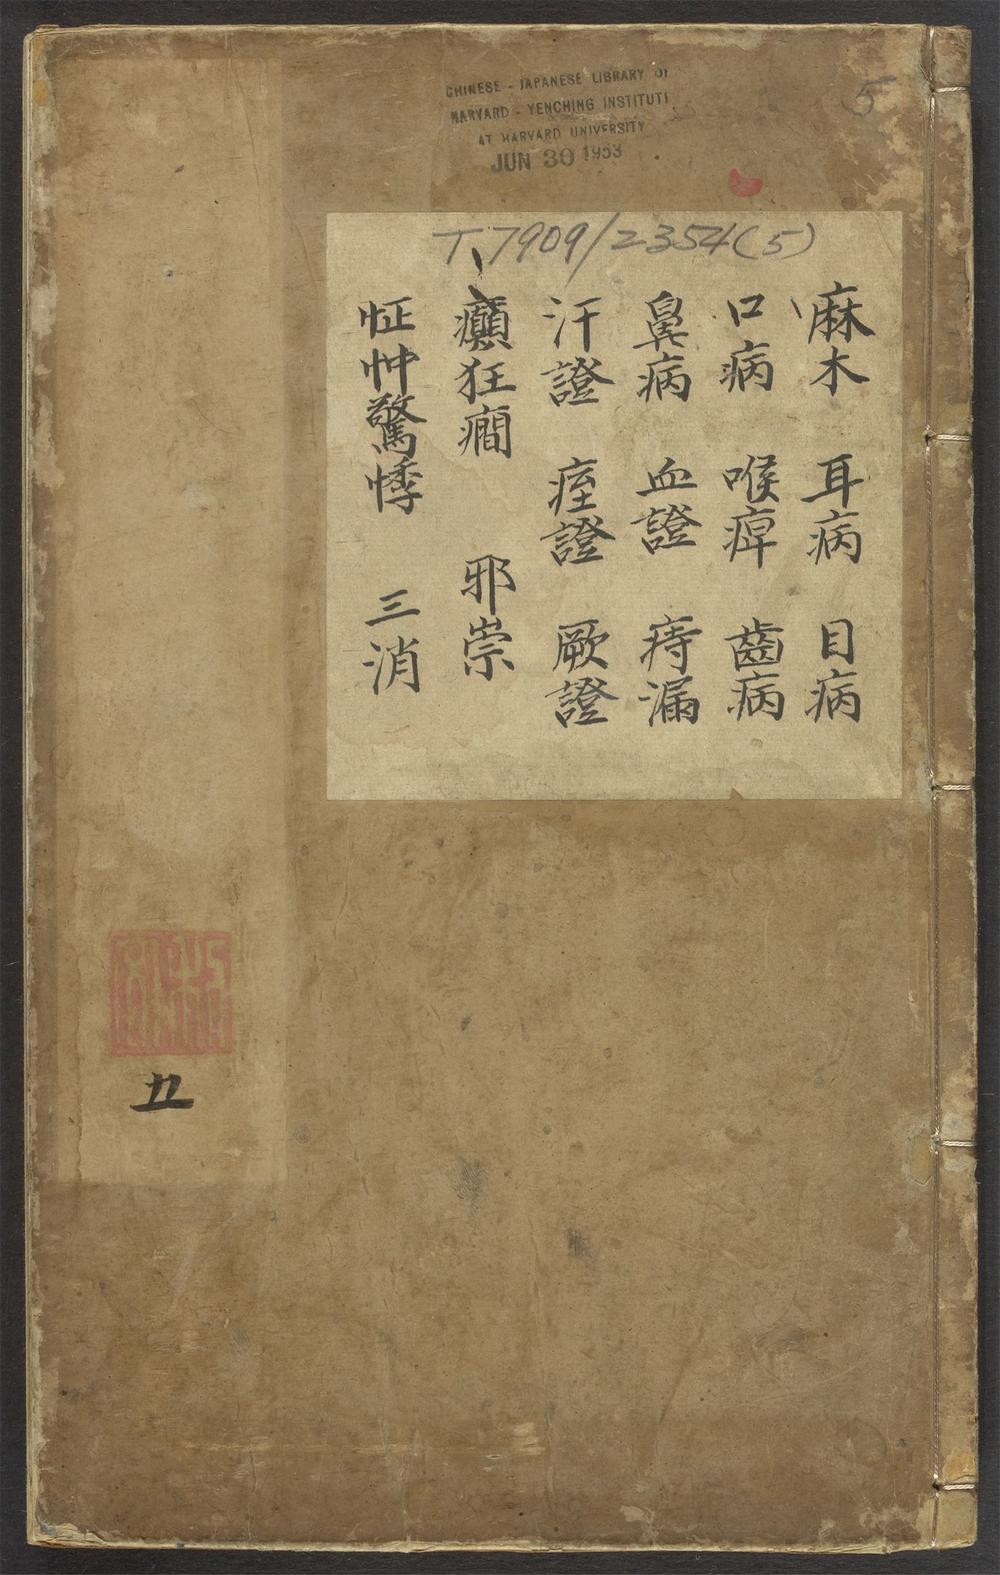 CHINESE - JAPANESE LIBRARY OF
HARVARD - YENCHING INSTITUTE
AT HARVARD UNIVERSITY
JUN 30 1953
5
T 7909/2354(5)
麻木 耳病 目病
口病 喉痺 齒病
鼻病 血證 痔漏
汗證 痓證 厥證
癲狂癎 邪祟
怔忡驚悸 三消
五